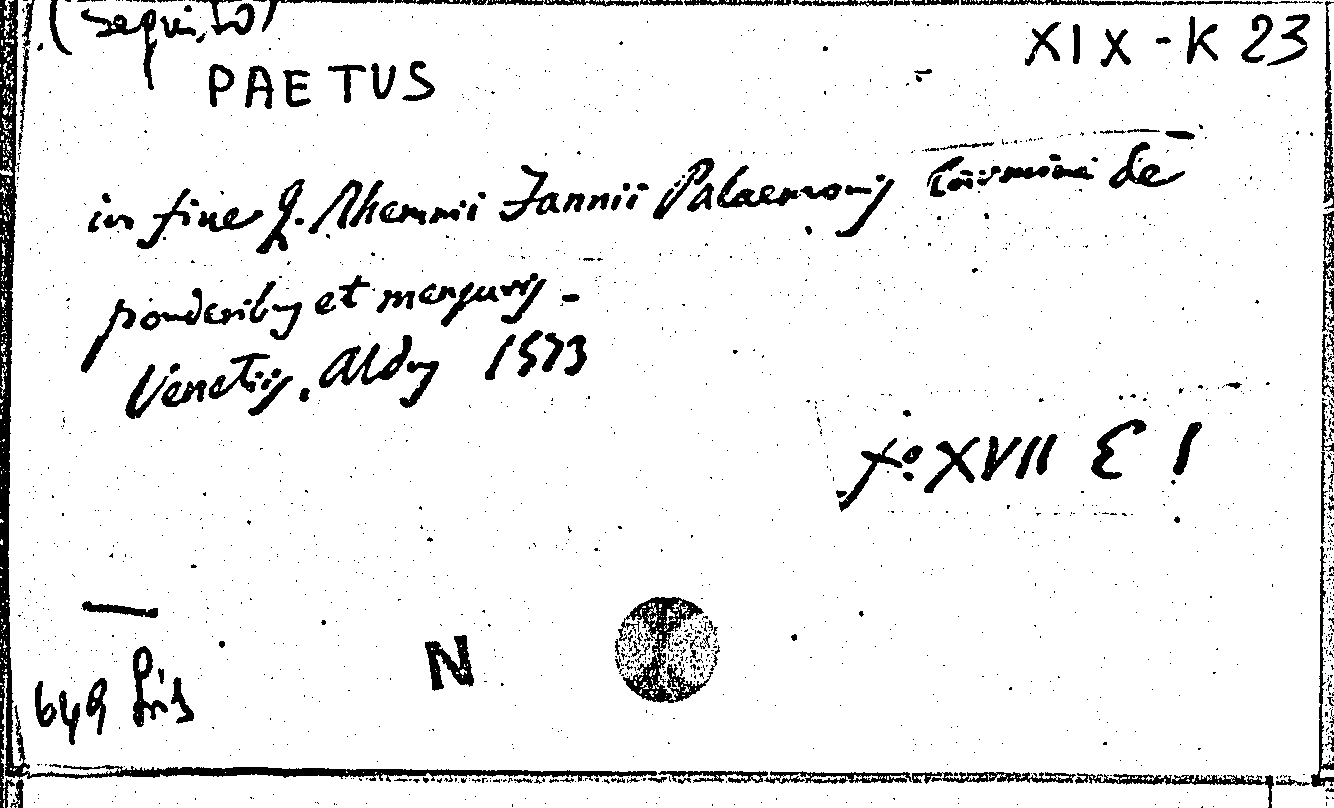 (seguito)
XIX - K 23
PAETUS
in fine Q. Rhemnii Fannii Palaemonis de
ponderibus et mensuris -
Venetiis. Aldus 1573
fº XVII E 1
N
649